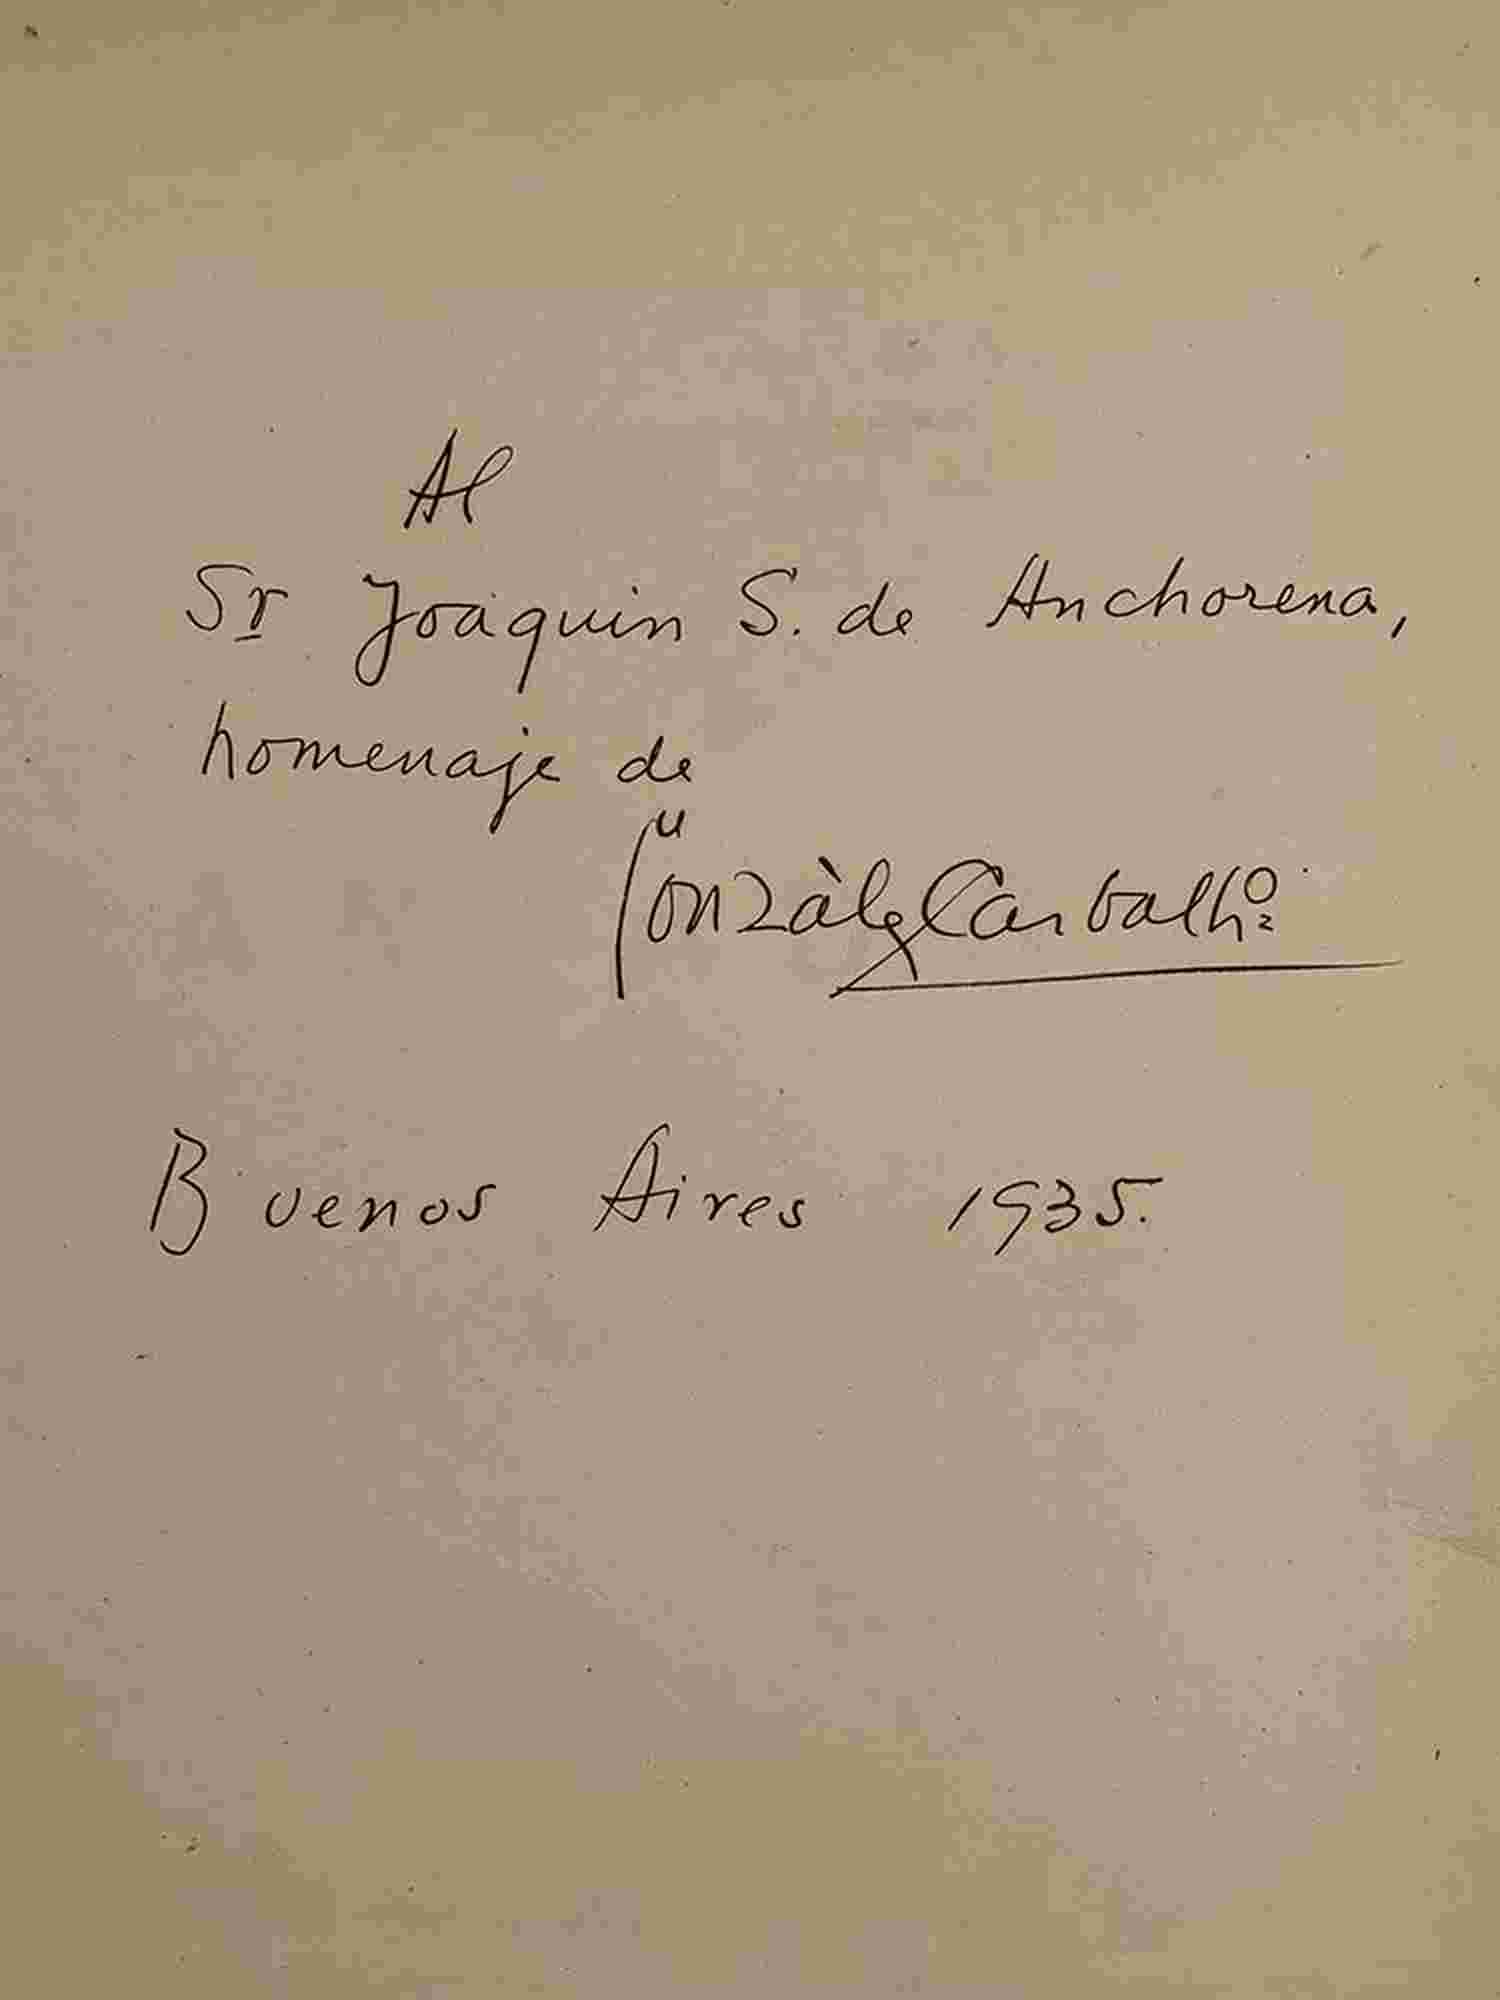 Al
Sr Joaquin S. de Anchorena,
homenaje de
González Carbalho
Buenos Aires 1935.